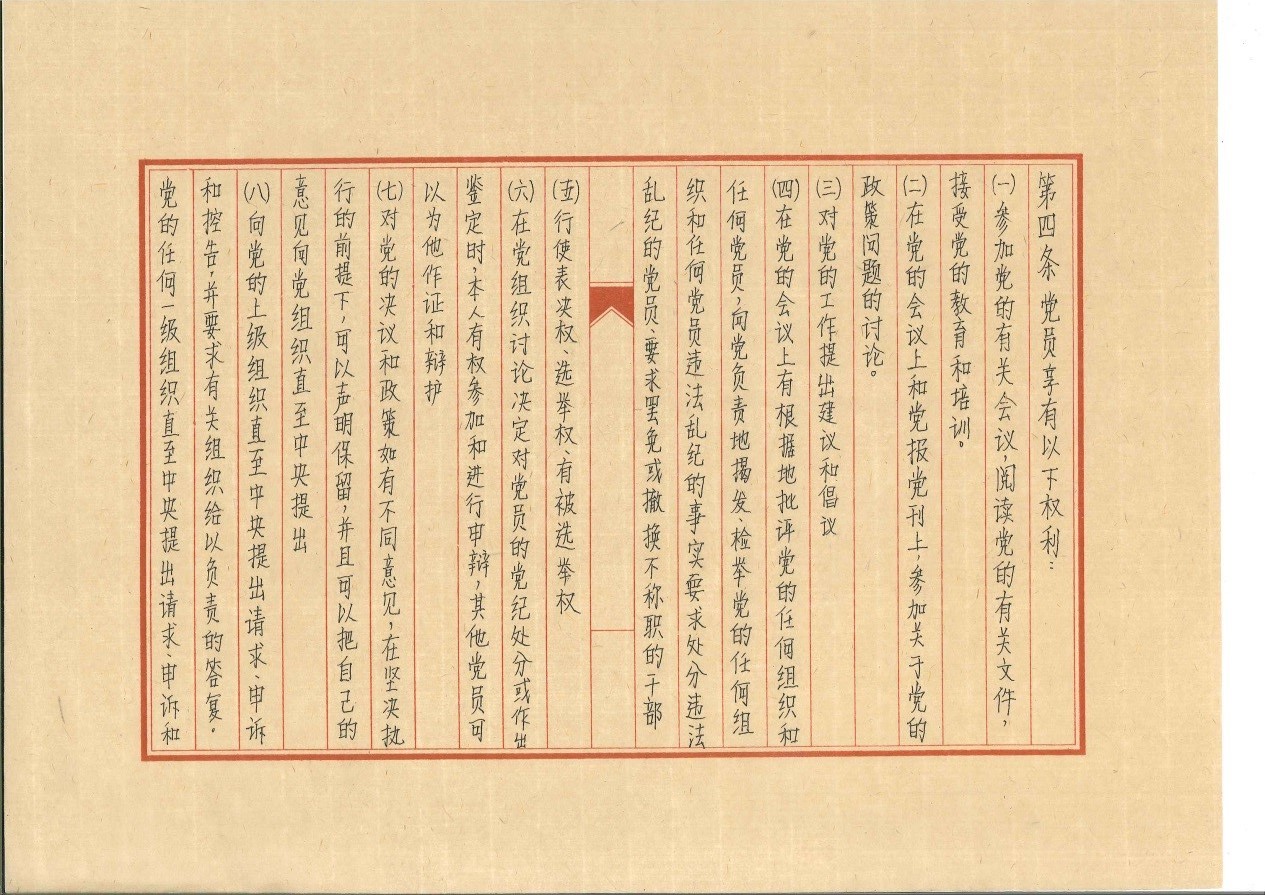 第四条 党员享有以下权利：
㈠参加党的有关会议，阅读党的有关文件，
接受党的教育和培训。
㈡在党的会议上和党报党刊上，参加关于党的
政策问题的讨论。
㈢对党的工作提出建议和倡议
㈣在党的会议上有根据地批评党的任何组织和
任何党员，向党负责地揭发、检举党的任何组
织和任何党员违法乱纪的事实要求处分违法
乱纪的党员、要求罢免或撤换不称职的干部
㈤行使表决权、选举权、有被选举权
㈥在党组织讨论决定对党员的党纪处分或作出
鉴定时，本人有权参加和进行申辩，其他党员可
以为他作证和辩护
㈦对党的决议和政策如有不同意见，在坚决执
行的前提下，可以声明保留，并且可以把自己的
意见向党组织直至中央提出
㈧向党的上级组织直至中央提出请求、申诉
和控告，并要求有关组织给以负责的答复。
党的任何一级组织直至中央提出请求、申诉和